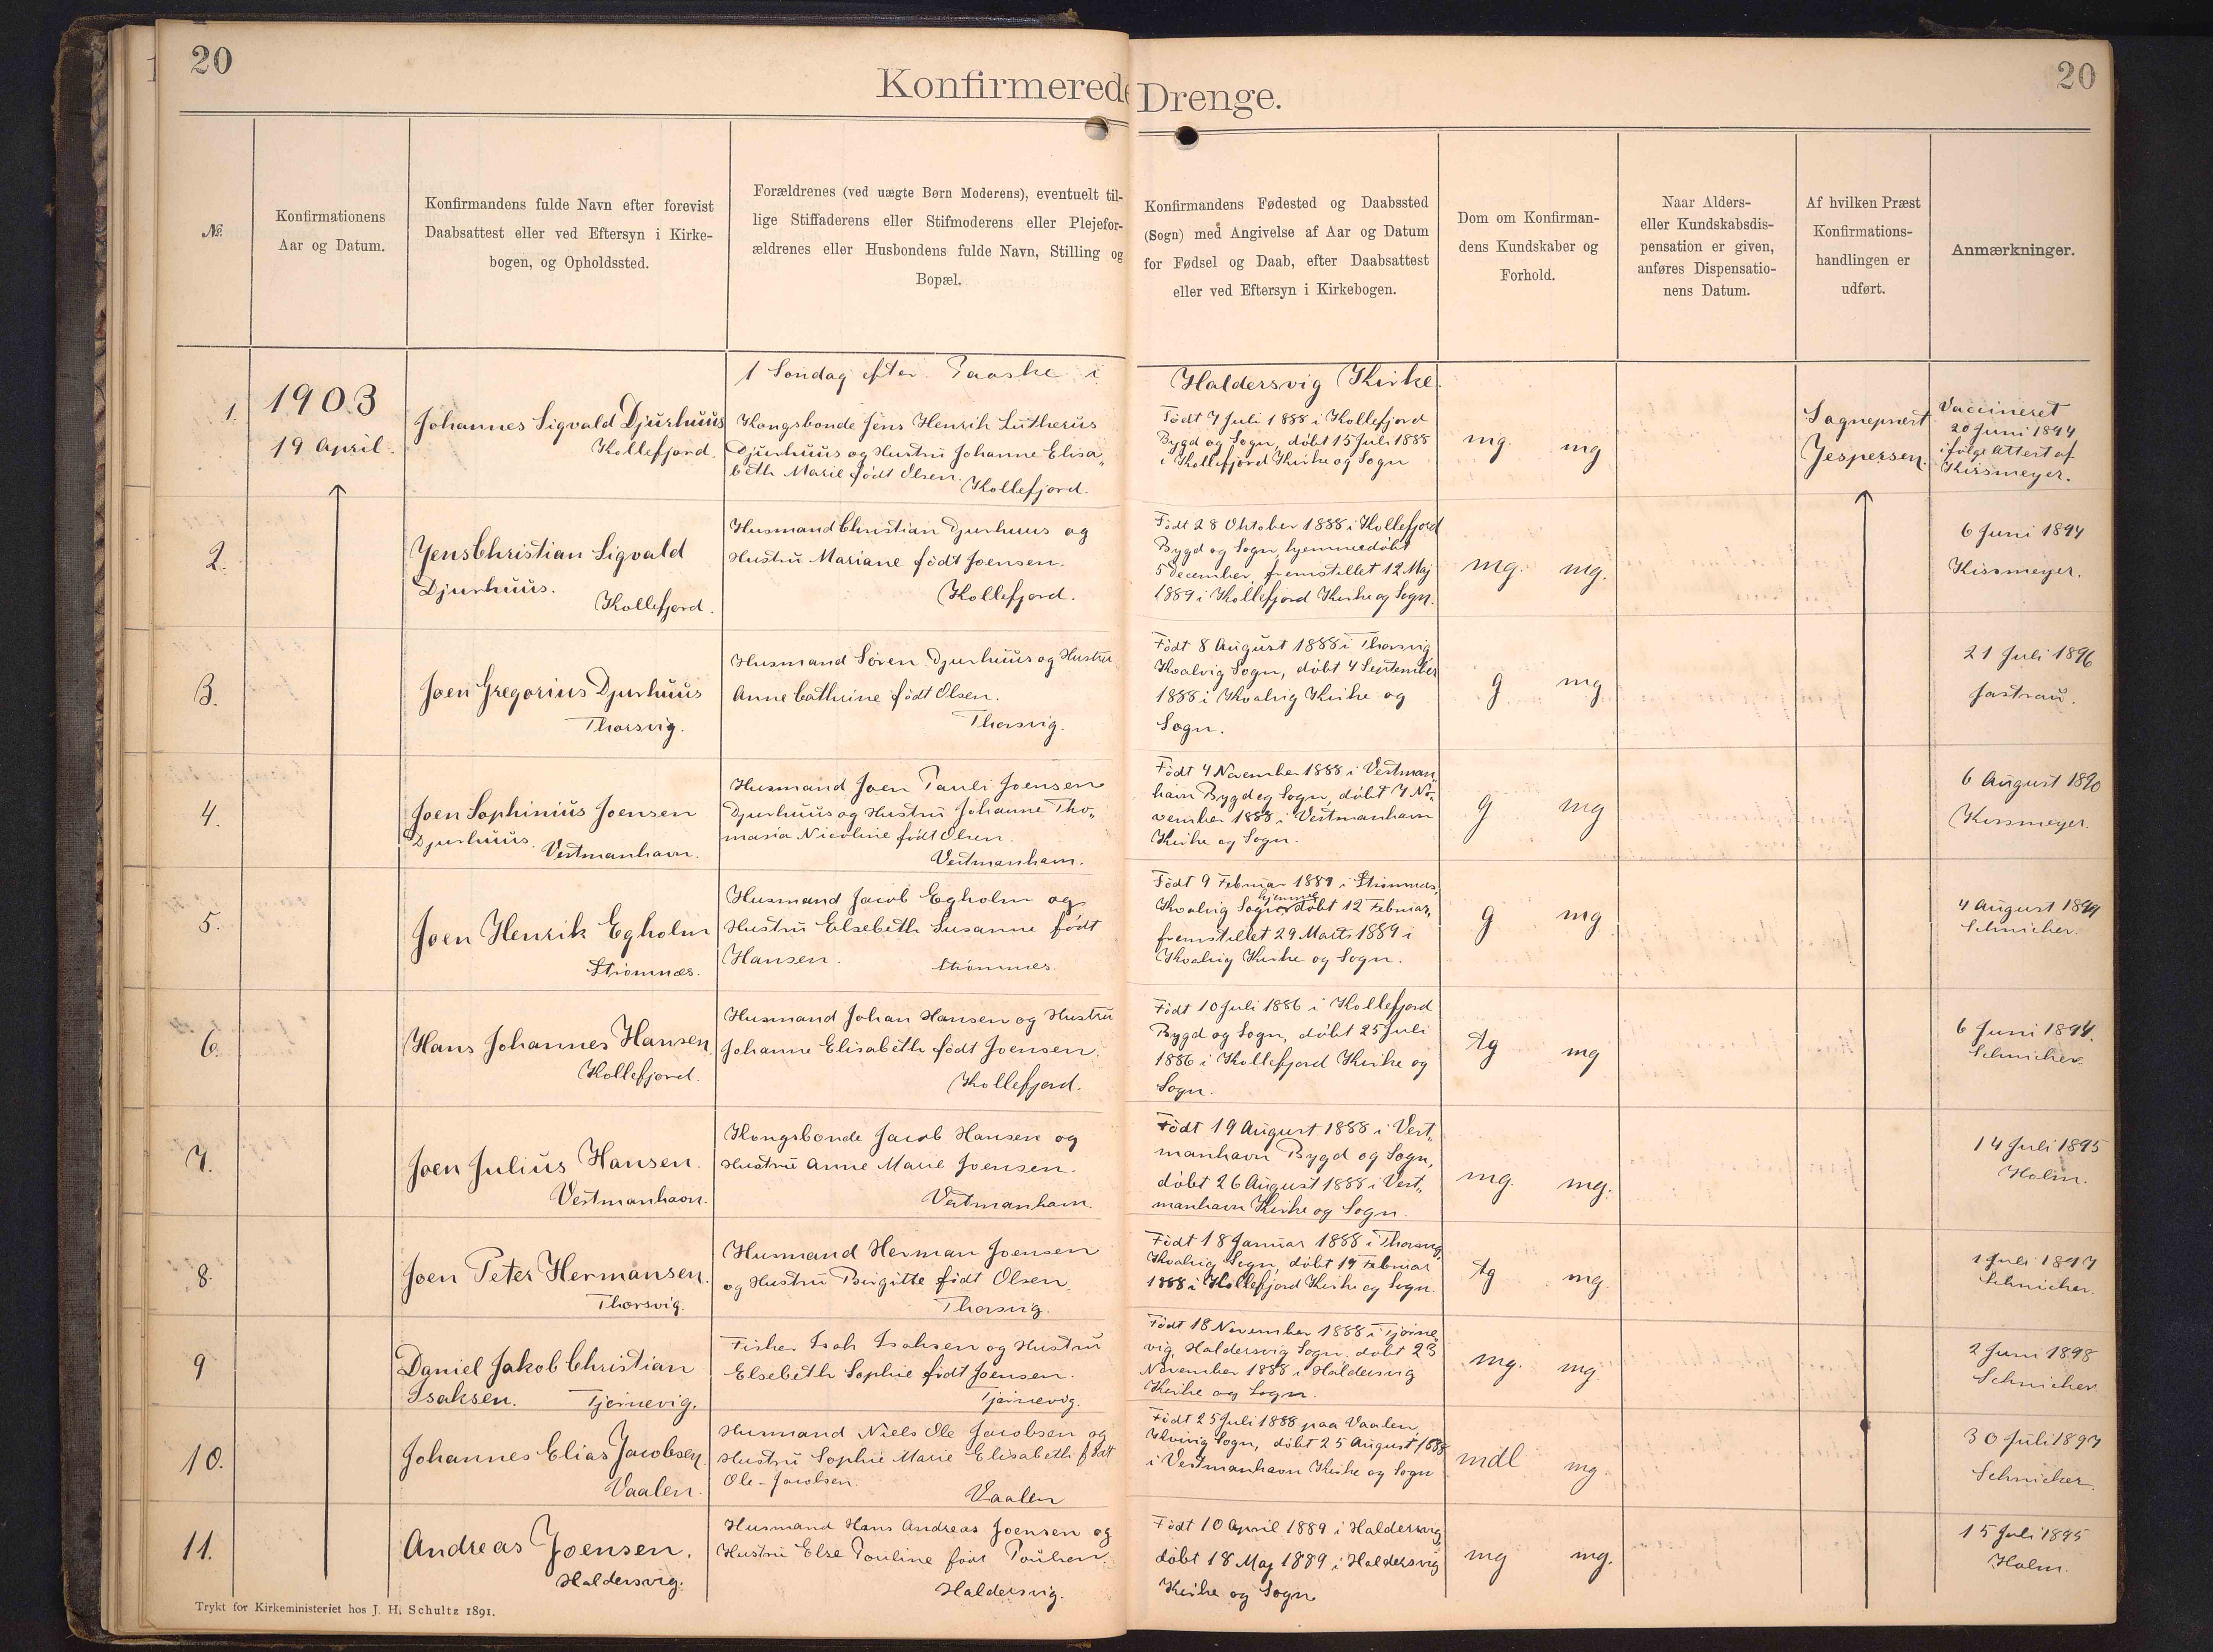 20
20
Konfirmerede Drenge.
№.
Konfirmationens
Aar og Datum.
Konfirmandens fulde Navn efter forevist
Daabsattest eller ved Eftersyn i Kirke-
bogen, og Opholdssted.
Forældrenes (ved uægte Børn Moderens), eventuelt til-
lige Stiffaderens eller Stifmoderens eller Plejefor-
ældrenes eller Husbondens fulde Navn, Stilling og
Bopæl.
Konfirmandens Fødested og Daabssted
(Sogn) med Angivelse af Aar og Datum
for Fødsel og Daab, efter Daabsattest
eller ved Eftersyn i Kirkebogen.
Dom om Konfirman-
dens Kundskaber og
Forhold.
Naar Alders-
eller Kundskabsdis-
pensation er given,
anføres Dispensatio-
nens Datum.
Af hvilken Præst
Konfirmations-
handlingen er
udført.
Anmærkninger.
1 Søndag efter Paaske i Haldersvig Kirke.
1.
1903
19 April.
Johannes Sigvald Djurhuus
Kollefjord.
Kongsbonde Jens Henrik Lutherus
Djurhuus og Hustru Johanne Elisa„
beth Marie født Olsen.
Kollefjord.
Født 7 Juli 1888 i Kollefjord
Bygd og Sogn, døbt 15 Juli 1888
i Kollefjord Kirke og Sogn
mg. mg
Sognepræst
Jespersen.
Vaccineret
20 Juni 1894
ifølge Attest af
Kissmeyer.
2.
Jens Christian Sigvald
Djurhuus.
Kollefjord.
Husmand Christian Djurhuus og
Hustru Mariane født Joensen.
Kollefjord.
Født 28 Oktober 1888 i Kollefjord
Bygd og Sogn, hjemmedøbt
5 December, fremstillet 12 Maj
1889 i Kollefjord Kirke og Sogn.
mg. mg.
6 Juni 1894
Kissmeyer.
3.
Joen Gregorius Djurhuus
Thorsvig.
Husmand Søren Djurhuus og Hustru
Anne Cathrine født Olsen.
Thorsvig.
Født 8 August 1888 i Thorsvig
Kvalvig Sogn, døbt 4 September
1888 i Kvalvig Kirke og
Sogn.
g mg
21 Juli 1896
Jastrau.
4.
Joen Sophinius Joensen
Djurhuus.
Vestmanhavn.
Husmand Joen Pauli Joensen
Djurhuus og Hustru Johanne Tho„
masia Nicoline født Olsen.
Vestmanhavn.
Født 4 November 1888 i Vestman„
havn Bygd og Sogn, døbt 7 No„
vember 1888 i Vestmanhavn
Kirke og Sogn.
g mg
6 August 1890
Kissmeyer.
5.
Joen Henrik Egholm
Strømnæs.
Husmand Jacob Egholm og
Hustru Elsebeth Susanne født
Hansen.
Strømnæs.
Født 9 Februar 1889 i Strømnæs,
Kvalvig Sogn, hjemmedøbt 12 Februar,
fremstillet 29 Marts 1889 i
Kvalvig Kirke og Sogn.
g mg
4 August 1899
Schnicker.
6.
Hans Johannes Hansen
Kollefjord.
Husmand Johan Hansen og Hustru
Johanne Elisabeth født Joensen.
Kollefjord.
Født 10 Juli 1886 i Kollefjord
Bygd og Sogn, døbt 25 Juli
1886 i Kollefjord Kirke og
Sogn.
tg mg
6 Juni 1894.
Schnicker.
7.
Joen Julius Hansen.
Vestmanhavn.
Kongsbonde Jacob Hansen og
Hustru Anne Marie Joensen.
Vestmanhavn.
Født 19 August 1888 i Vest„
manhavn Bygd og Sogn,
døbt 26 August 1888 i Vest„
manhavn Kirke og Sogn.
mg. mg.
14 Juli 1895
Holm.
8.
Joen Peter Hermansen.
Thorsvig.
Husmand Herman Joensen
og Hustru Birgitte født Olsen.
Thorsvig.
Født 18 Januar 1888 i Thorsvig
Kvalvig Sogn, døbt 19 Februar
1888 i Kollefjord Kirke og Sogn.
tg mg.
1 Juli 1897
Schnicker.
9
Daniel Jakob Christian
Isaksen. Tjørnevig.
Fisker Isak Isaksen og Hustru
Elsebeth Sophie født Joensen.
Tjørnevig.
Født 18 November 1888 i Tjørne„
vig, Haldersvig Sogn, døbt 23
November 1888 i Haldersvig
Kirke og Sogn.
mg. mg
2 Juni 1898
Schnicker
10.
Johannes Elias Jacobsen.
Vaalen.
Husmand Niels Ole Jacobsen og
Hustru Sophie Marie Elisabeth født
Ole-Jacobsen.
Vaalen
Født 25 Juli 1888 paa Vaalen,
Sogn, døbt 25 August 1888
i Vestmanhavn Kirke og Sogn
mdl mg
30 Juli 1897
Schnicker.
11.
Andreas Joensen.
Haldersvig.
Husmand Hans Andreas Joensen og
Hustru Else Pouline født Poulsen.
Haldersvig.
Født 10 April 1889 i Haldersvig,
døbt 18 Maj 1889 i Haldersvig
Kirke og Sogn
mg mg.
15 Juli 1895
Holm.
Trykt for Kirkeministeriet hos J. H. Schultz 1891.